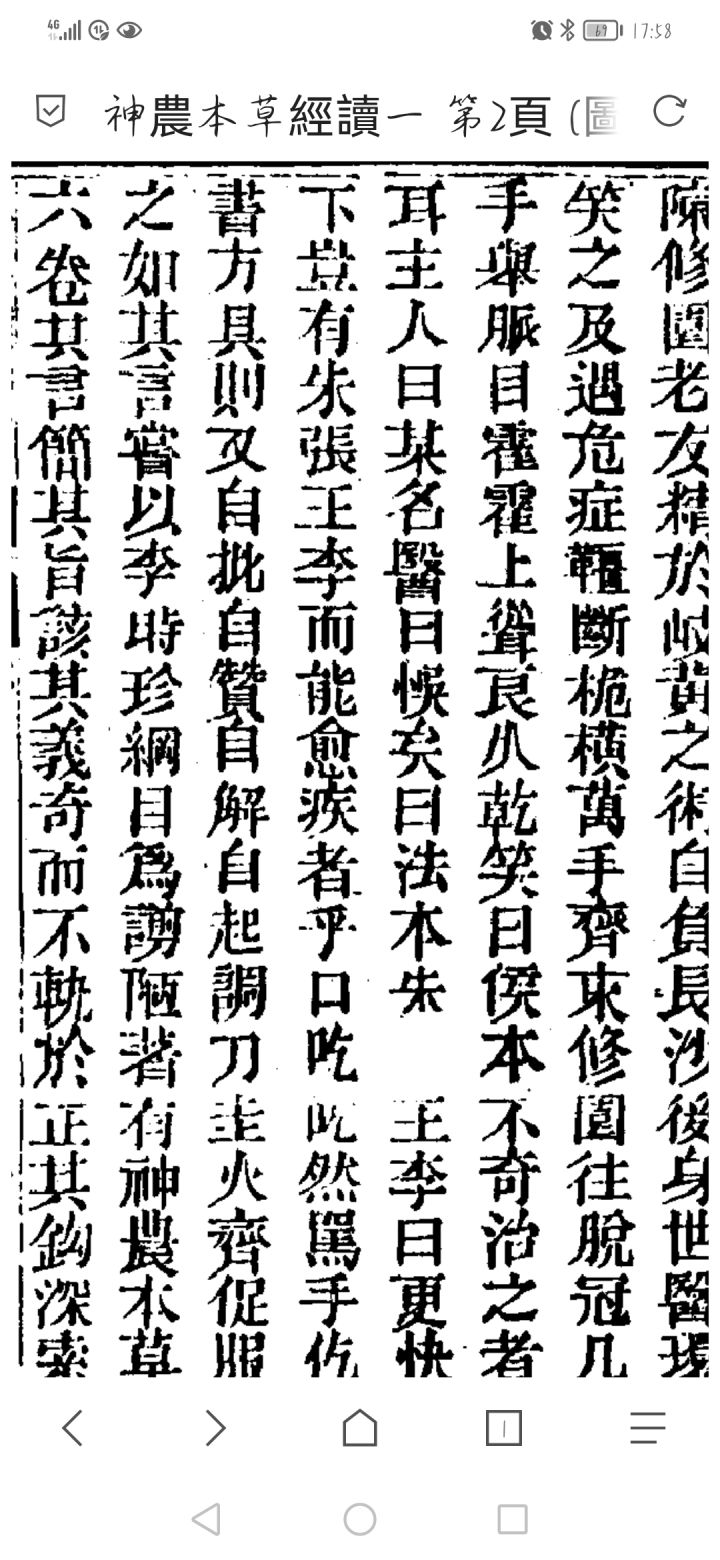 4G
69
17:58
神農本草經讀一 第2頁 (圖
陳修園老友精於岐黃之術自負長沙後身世醫環
笑之及遇危症鞭斷桅橫萬手齊束修園往脫冠几
手舉脈目霍霍上聳良久乾笑曰候本不奇治之者
耳主人曰某名醫曰悞矣曰法本朱 王李曰更快
下豈有朱張王李而能愈疾者乎口吃吃然罵手仡
書方具則又自批自贊自解自起調刀圭火齊促服
之如其言嘗以李時珍綱目為謭陋著有神農本草
六卷其言簡其旨該其義奇而不軌於正其鉤深索
1